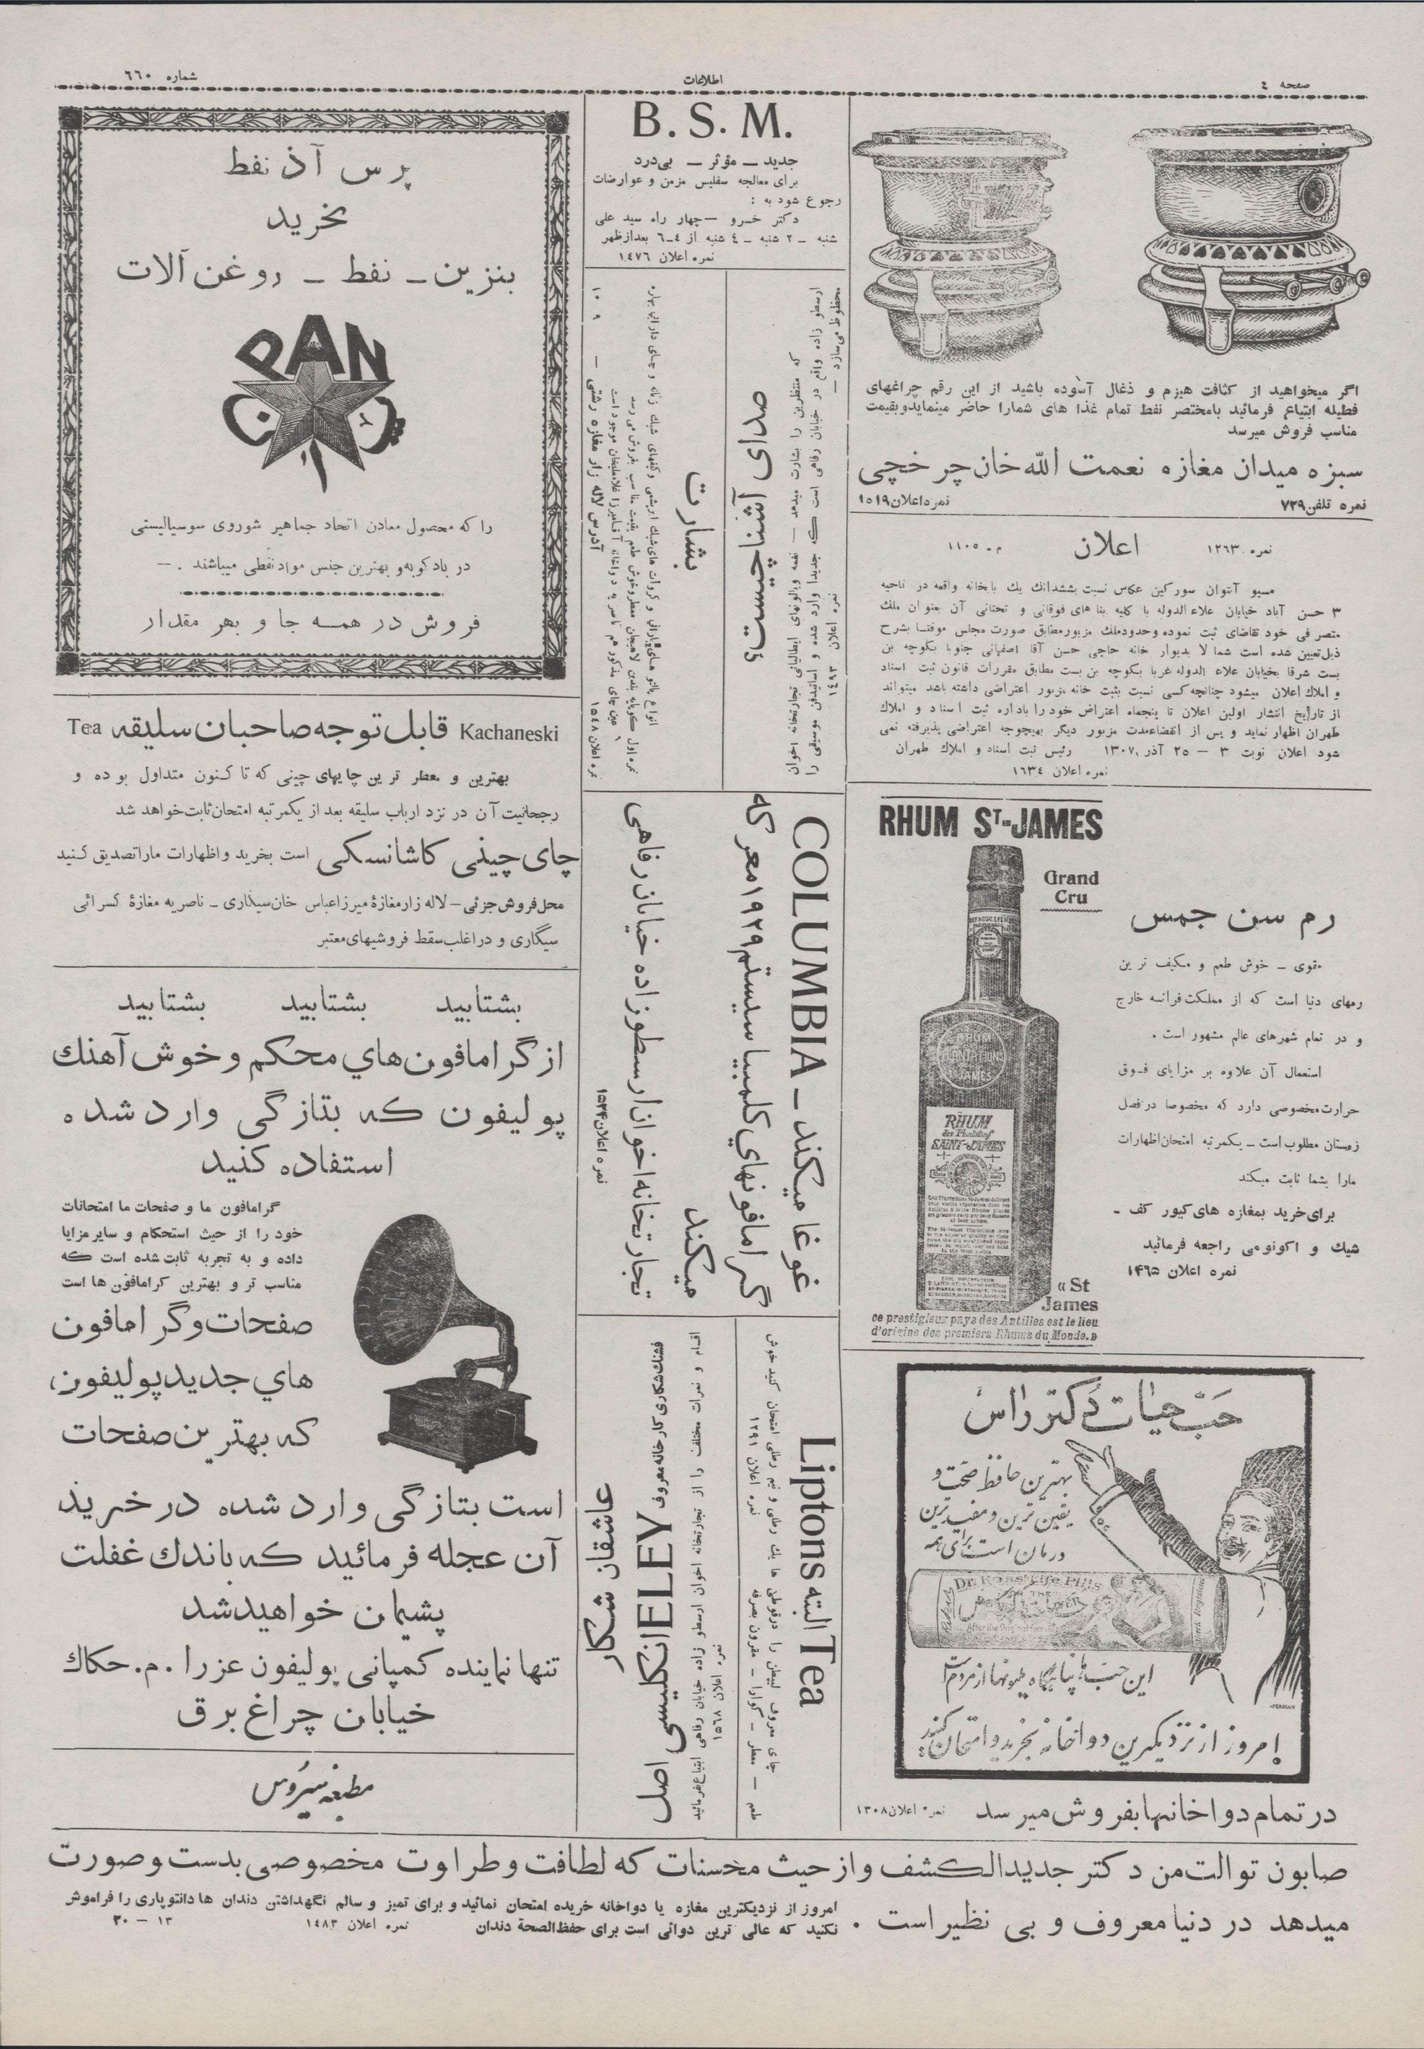 صفحه ٤
اطلاعات
شماره ٦٦٠
اگر میخواهید از کثافت هیزم و ذغال آسوده باشید از این رقم چراغهای
فطیله ابتیاع فرمائید بامختصر نفط تمام غذا های شمارا حاضر مینمایدوبقیمت
مناسب فروش میرسد
سبزه میدان مغازه نعمت الله خان چرخچی
نمره تلفن ۷۳۹
نمره اعلان ۱۵۱۹
نمره ۱۲٦۳
اعلان
م. ۱۱۰۵
مسیو آنتوان سورکین عکاس نسبت بششدانك يك باخانه واقعه در ناحیه
۳ حسن آباد خیابان علاءالدوله با کلیه بنا های فوقانی و تحتانی آن بعنوان ملك
متصرفی خود تقاضای ثبت نموده وحدودملك مزبورمطابق صورت مجلس موقتا بشرح
ذیل تعیین شده است شمالا بدیوار خانه حاجی حسن آقا اصفهانی جنوبا بکوچه بن
بست شرقا بخیابان علاء الدوله غربا بکوچه بن بست مطابق مقررات قانون ثبت اسناد
و املاك اعلان میشود چنانچه کسی نسبت بثبت خانه مزبور اعتراضی داشته باشد میتواند
از تاریخ انتشار اولین اعلان تا پنجماه اعتراض خود را باداره ثبت اسناد و املاك
طهران اظهار نماید و پس از انقضاءمدت مزبور دیگر بهیچوجه اعتراضی پذیرفته نمی
شود اعلان نوبت ۳ — ۲۵ آذر ۱۳۰۷ رئیس ثبت اسناد و املاك طهران
نمره اعلان ۱٦۳٤
RHUM ST-JAMES
Grand
Cru
رم سن جمس
مقوی ـ خوش طعم و مکیف ترین
رمهای دنیا است که از مملکت فرانسه خارج
و در تمام شهرهای عالم مشهور است .
استعمال آن علاوه بر مزایای فوق
حرارت مخصوصی دارد که مخصوصا درفصل
زمستان مطلوب است ـ یکمرتبه امتحان اظهارات
مارا بشما ثابت میکند
برای خرید بمغازه های کیور کف ـ
شیك و اکونومی راجعه فرمائید
نمره اعلان ۱۴۶۵
RHUM
PLANTATIONS
St JAMES
RHUM
des Plantations
SAINT-JAMES
« St
James
ce prestigieux pays des Antilles est le lieu
d'origine des premiers Rhums du Monde. »
حَبّ حیات دُکتر راس
بهترین حافظ صحّت و
یقین ترین و مفید ترین
درمان است برای همه
Dr. Ross' Life Pills
این حبّ ها پناهگاه ملیونها از مردم است
امروز از نزدیکترین دواخانه بخرید و امتحان کنید!
در تمام دواخانها بفروش میرسد
نمره اعلان ۱۳۰۸
B. S. M.
جدید ـ مؤثر ـ بی درد
برای معالجه سفلیس مزمن و عوارضات
رجوع شود به :
دکتر خسرو — چهار راه سید علی
شنبه ـ ۲ شنبه ـ ٤ شنبه از ٤ـ٦ بعدازظهر
نمره اعلان ۱٤۷٦
صدای آتشین
که منتظرین را بشارت میدهد — نغمه ویالونهای ایطالیائی تجارتخانه اخوان
ارسطو زاده واقع در خیابان رفاهی است که جدیدا وارد شده و اساتیدفن موسیقی را
محظوظ میسازد —
نمره اعلان ۱٤۹۳
بشارت
آدرس لاله زار مغازه رشتی —
۹ ۱۰
نمره اعلان ۱۵۴۸
COLUMBIA — غوغا میکند
گرامافونهای کلمبیا سیستم ۱۹۲۹ معرکه
میکند
تجارتخانه اخوان ارسطوزاده خیابان رفاهی
نمره اعلان ۱۵۳۴
Liptons البته Tea
چای معروف لیپطن را درقوطی ها یك رطلی و نیم رطلی امتحان کنید خوش
طعم — معطر — گوارا — مقرون بصرفه
نمره اعلان ۱۲۹۱
عاشقان شکار
فشنك شکاری کارخانه معروف ELEY انگلیسی اصل
اقسام و نمرات مختلف را از تجارتخانه اخوان ارسطو زاده خیابان رفاهی ابتیاع فرمائید
نمره اعلان ۱۵٦۸
پرس آذ نفط
بخرید
بنزین ـ نفط ـ روغن آلات
PAN
را که محصول معادن اتحاد جماهیر شوروی سوسیالیستی
در بادکوبه و بهترین جنس مواد نفطی میباشند . —
فروش در همه جا و بهر مقدار
Kachaneski قابل توجه صاحبان سلیقه Tea
بهترین و معطر ترین چایهای چینی که تاکنون متداول بوده و
رجحانیت آن در نزد ارباب سلیقه بعد از یکمرتبه امتحان ثابت خواهد شد
چای چینی کاشانسکی است بخرید و اظهارات ماراتصدیق کنید
محل فروش جزئی — لاله زار مغازهٔ میرزاعباس خان سیگاری ـ ناصریه مغازهٔ کسرائی
سیگاری و در اغلب سقط فروشیهای معتبر
بشتابید بشتابید بشتابید
از گرامافون های محکم و خوش آهنك
پولیفون که بتازگی وارد شده
استفاده کنید
گرامافون ما و صفحات ما امتحانات
خود را از حیث استحکام و سایر مزایا
داده و به تجربه ثابت شده است که
مناسب تر و بهترین گرامافون ها است
صفحات و گرامافون
های جدید پولیفون
که بهترین صفحات
است بتازگی وارد شده در خرید
آن عجله فرمائید که باندك غفلت
پشیمان خواهید شد
تنها نماینده کمپانی پولیفون عزرا . م . حکاك
خیابان چراغ برق
مطبعه سیروس
صابون توالت من دکتر جدید الکشف و از حیث محسنات که لطافت و طراوت مخصوصی بدست و صورت
میدهد در دنیا معروف و بی نظیر است .
امروز از نزدیکترین مغازه یا دواخانه خریده امتحان نمائید و برای تمیز و سالم نگهداشتن دندان ها دانتوپاری را فراموش
نکنید که عالی ترین دوائی است برای حفظ الصحة دندان
نمره اعلان ۱٤۸۳
۱۳ — ۲۰